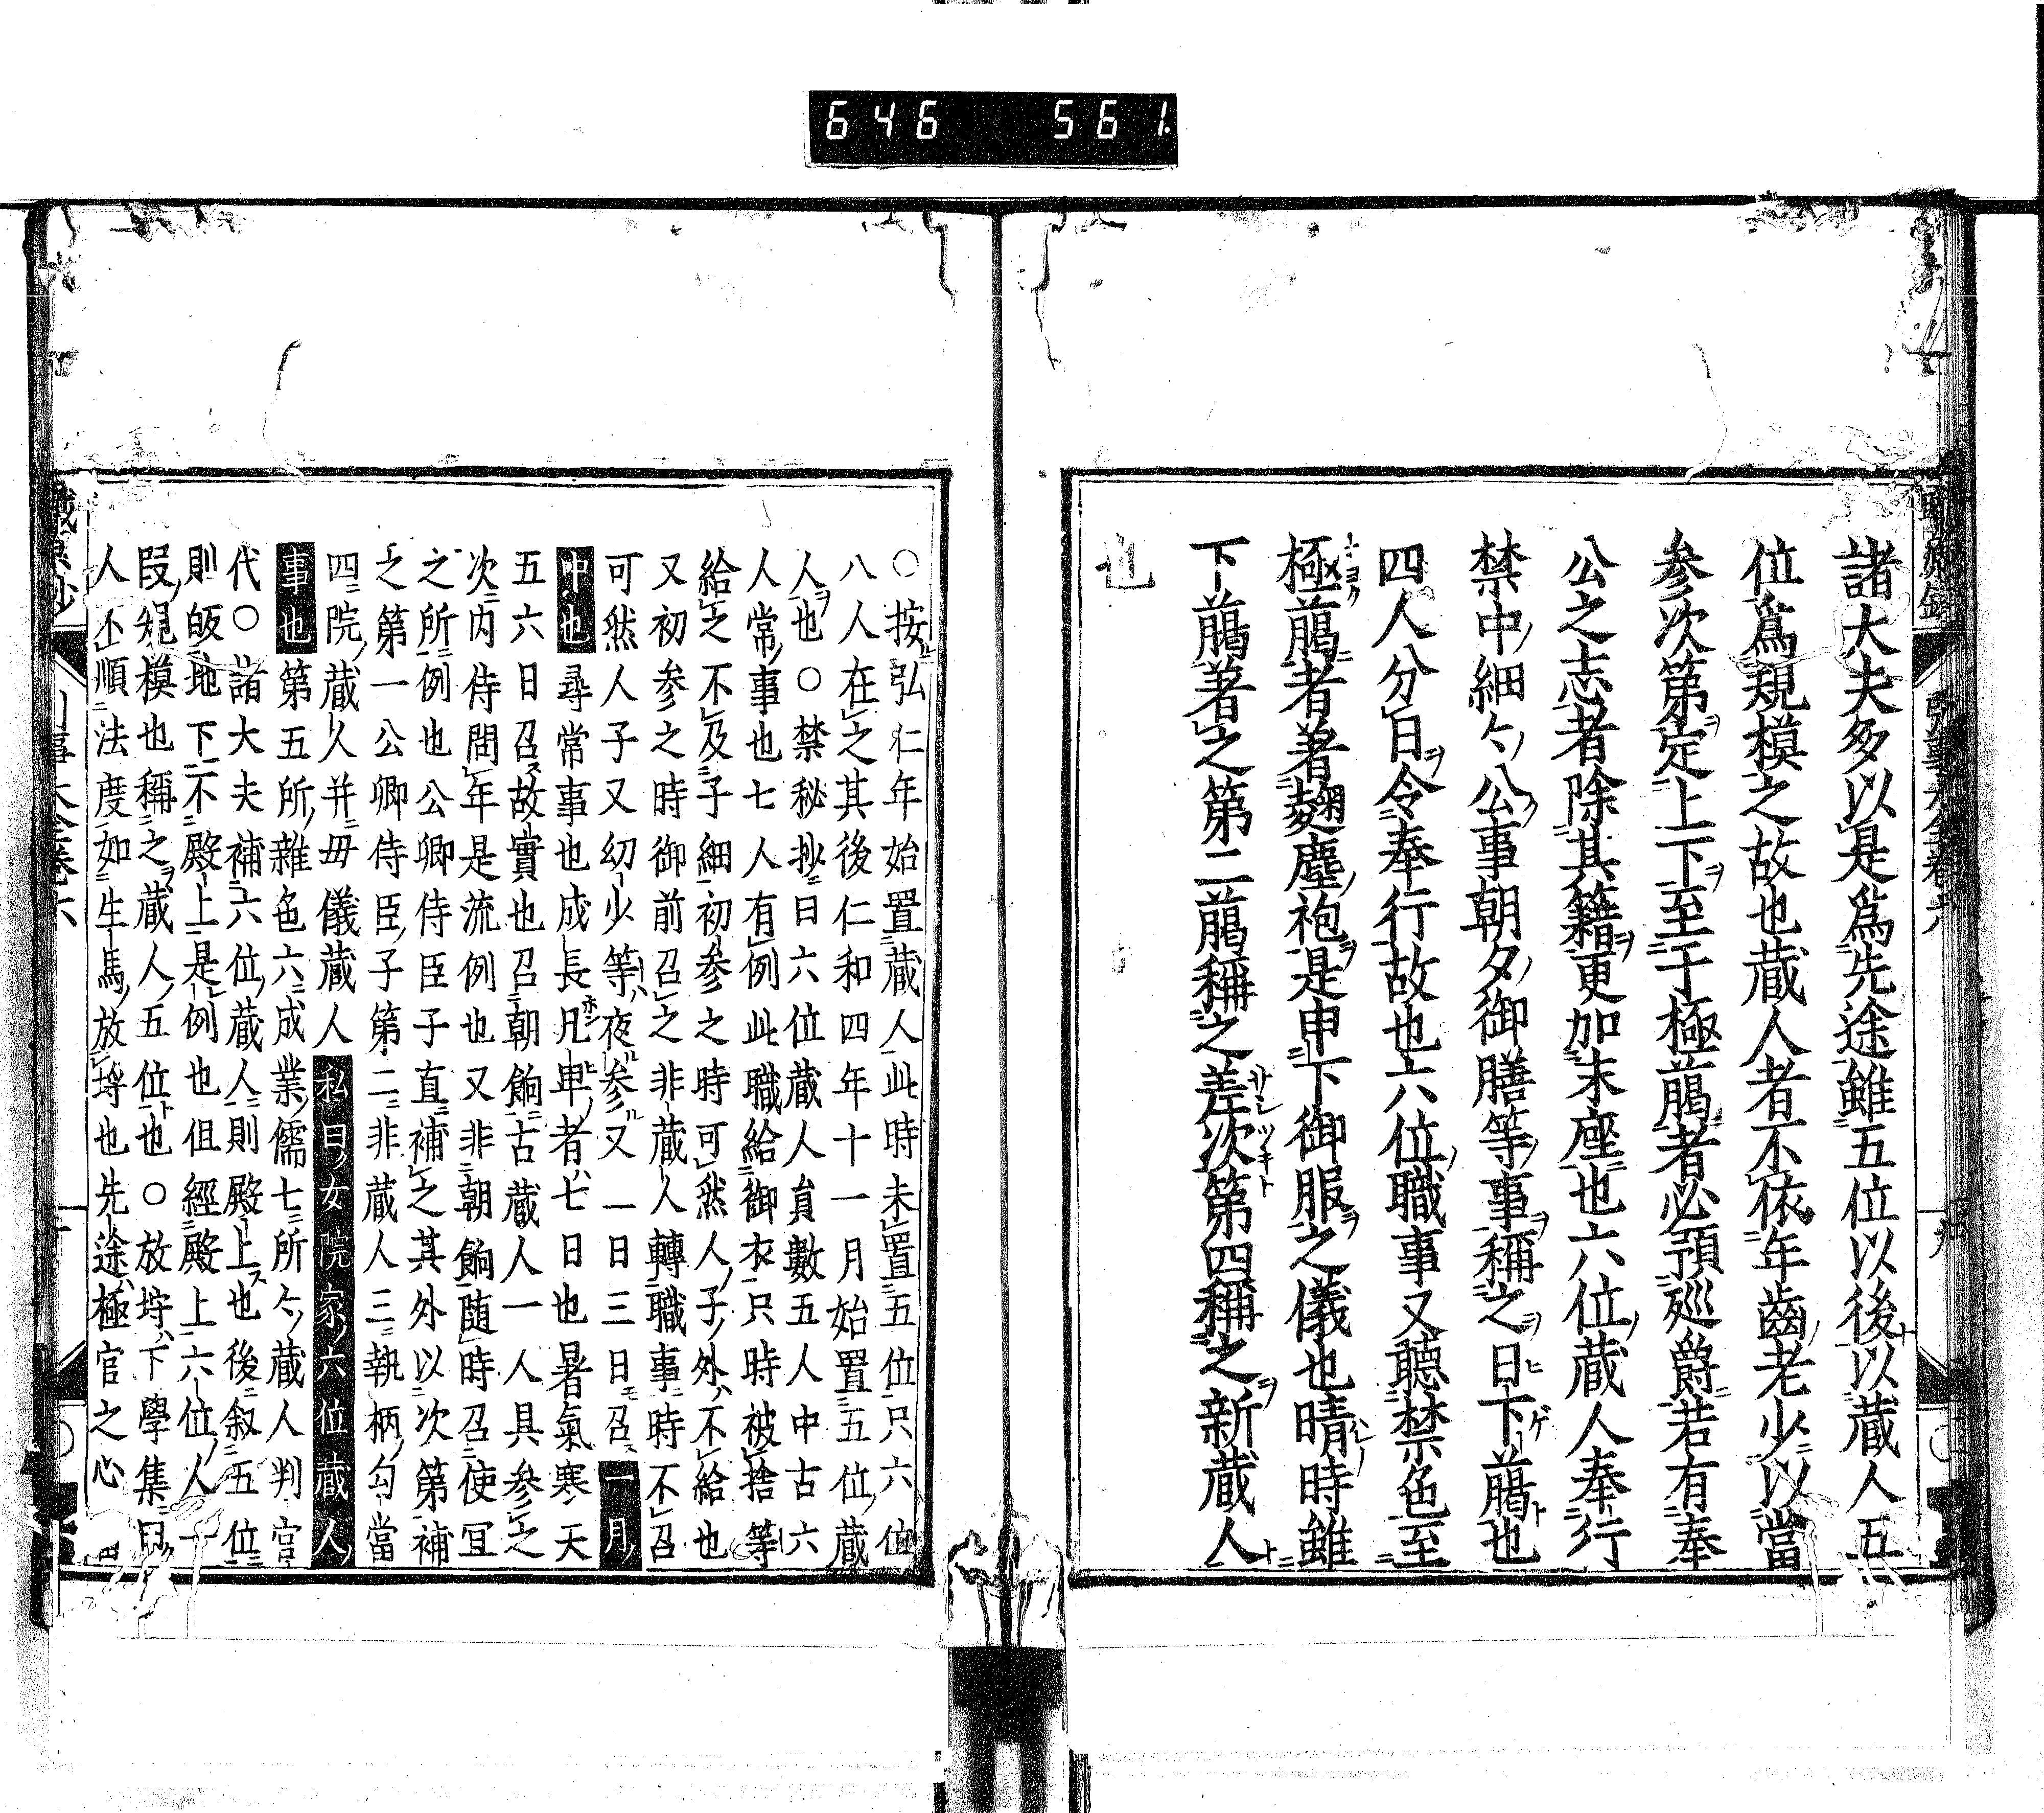 646 561.
諸大夫多以是爲先途雖五位以後以蔵人五
位爲規模之故也蔵人者不依年齒老少以當
参次第定上下至于極﨟者必預廵爵若有奉
公之志者除其籍更加末座也六位蔵人奉行
禁中細々公事朝夕御膳等事稱之日下﨟也
四人分日令奉行故也六位職事又聴禁色至
極﨟者著麹塵袍是申下御服之儀也晴時雖
下﨟著之第二﨟稱之差次第四稱之新蔵人
也
○按弘仁年始置蔵人此時未置五位只六位
八人在之其後仁和四年十一月始置五位蔵
人也○禁秘抄曰六位蔵人員數五人中古六
人常事也七人有例此職給御衣只時被捨等
給之不及子細初参之時可然人子外不給也
又初参之時御前召之非蔵人轉職事時不召
可然人子又幼少等夜参又一日三日召一月
中也尋常事也成長凡卑者七日也暑氣寒天
五六日召故實也召朝餉古蔵人一人具参之
次内侍間年是流例也又非朝餉随時召使冝
之所例也公卿侍臣子直補之其外以次第補
之第一公卿侍臣子第二非蔵人三執柄勾當
四院蔵人并毋儀蔵人私曰女院家六位蔵人
事也第五所雜色六成業儒七所々蔵人判官
代○諸大夫補六位蔵人則殿上也後叙五位
則皈地下不殿上是例也但經殿上六位人一
叚規模也稱之蔵人五位也○放埓下學集曰
人不順法度如生馬放埓也先途極官之心